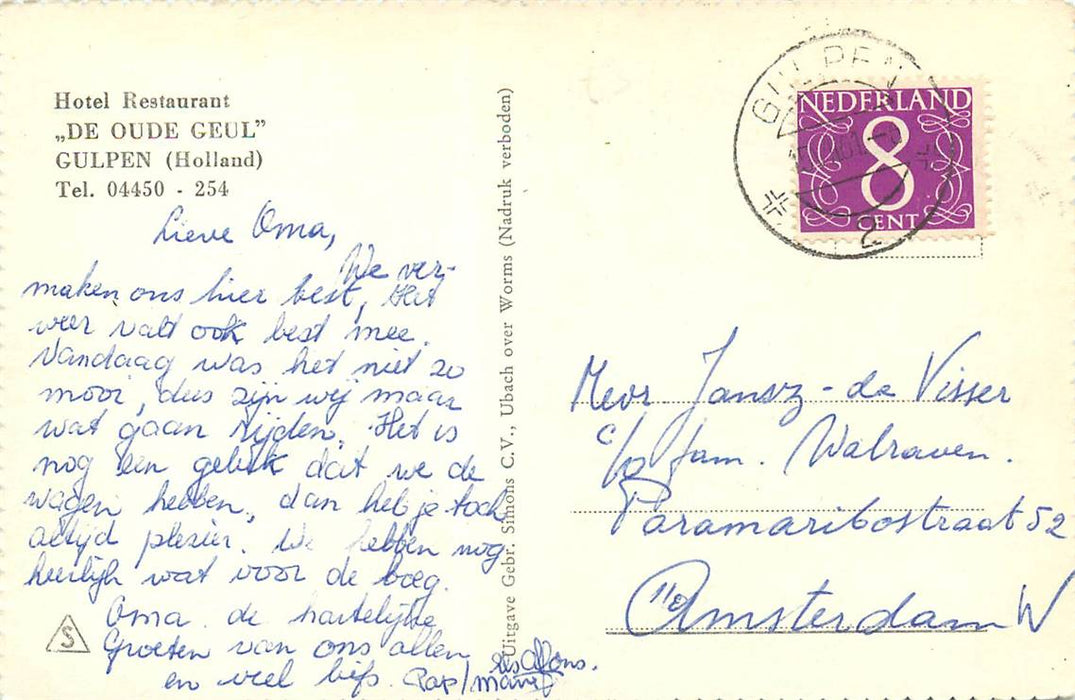 Hotel Restaurant
„DE OUDE GEUL”
GULPEN (Holland)
Tel. 04450 - 254
Lieve Oma,
We ver-
maken ons hier best, Het
weer valt ook best mee.
Vandaag was het niet zo
mooi, dus zijn wij maar
wat gaan rijden. Het is
nog een geluk dat we de
wagen hebben, dan heb je toch
altijd plezier. We hebben nog
heerlijk wat voor de boeg.
Oma de hartelijke
Groeten van ons allen
en veel kijs. Pap/
Alfons.
S
Uitgave Gebr. Simons C.V., Ubach over Worms (Nadruk verboden)
GULPEN
2
NEDERLAND
8
CENT
Mevr Jansz - de Visser
c/o fam. Walraven.
Paramaribostraat 52
Amsterdam W